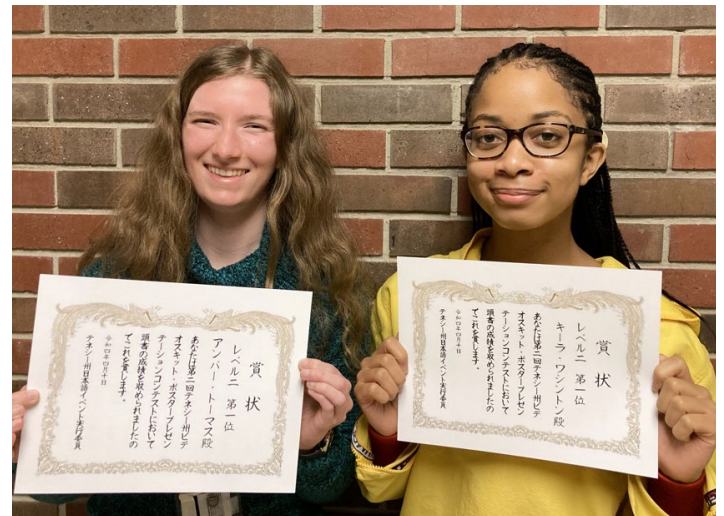 賞状
レベル二 第一位
アンバー・トーマス殿
あなたは第二回テネシー州ビデ
オスキット・ポスタープレゼン
テーションコンテストにおいて
頭書の成績を収められましたの
でこれを賞します。
令和四年四月十日
テネシー州日本語イベント実行委員
賞状
レベル二 第一位
キーラ・ワシントン殿
あなたは第二回テネシー州ビデ
オスキット・ポスタープレゼン
テーションコンテストにおいて
頭書の成績を収められましたの
でこれを賞します。
令和四年四月十日
テネシー州日本語イベント実行委員